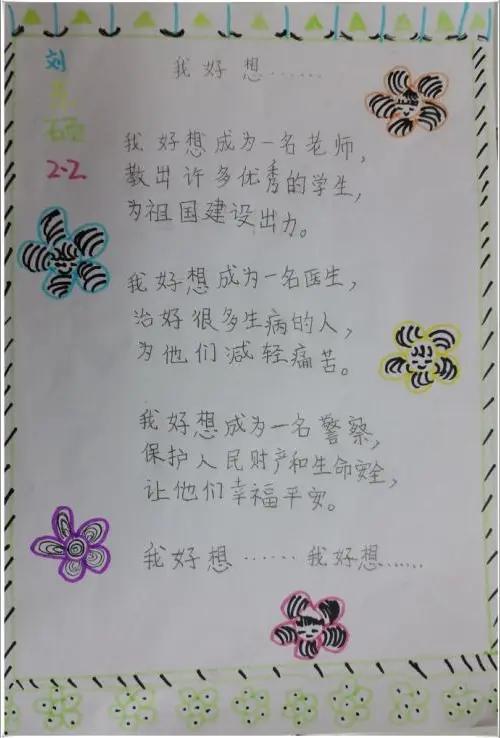 我好想……
刘
硕
2.2
我好想成为一名老师，
教出许多优秀的学生，
为祖国建设出力。
我好想成为一名医生，
治好很多生病的人，
为他们减轻痛苦。
我好想成为一名警察，
保护人民财产和生命安全，
让他们幸福平安。
我好想……我好想……